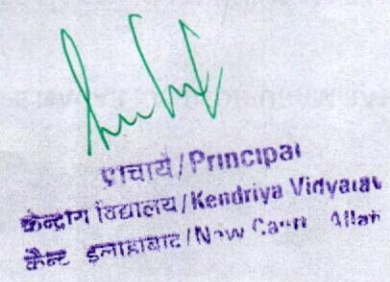 प्राचार्य/Principal
केन्द्रीय विद्यालय/Kendriya Vidyalay
कैन्ट इलाहाबाद/New Cantt Allah